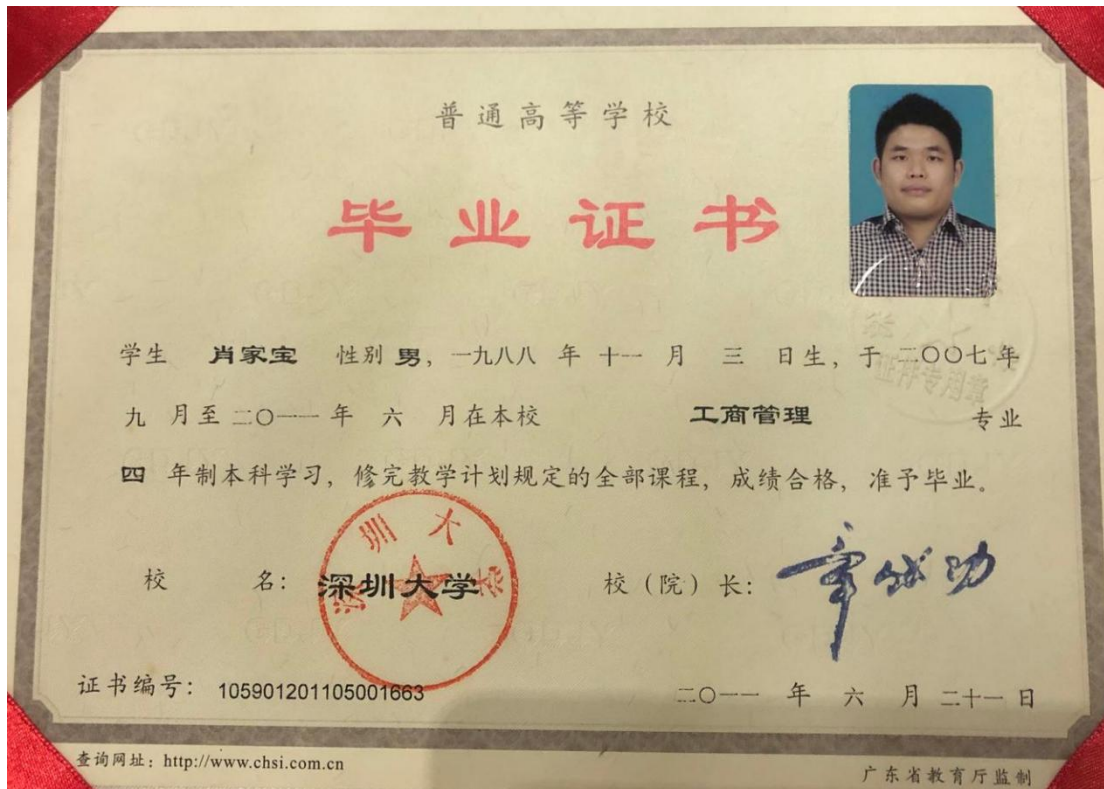 普通高等学校
毕业证书
学生 肖家宝 性别 男，一九八八 年 十一 月 三 日生，于 二〇〇七 年
九 月至 二〇一一 年 六 月在本校 工商管理 专业
四 年制本科学习，修完教学计划规定的全部课程，成绩合格，准予毕业。
校 名：深圳大学 校（院）长：章必功
深圳大学
证书编号：105901201105001663 二〇一一 年 六 月 二十一 日
查询网址：http://www.chsi.com.cn
广东省教育厅监制
证件专用章